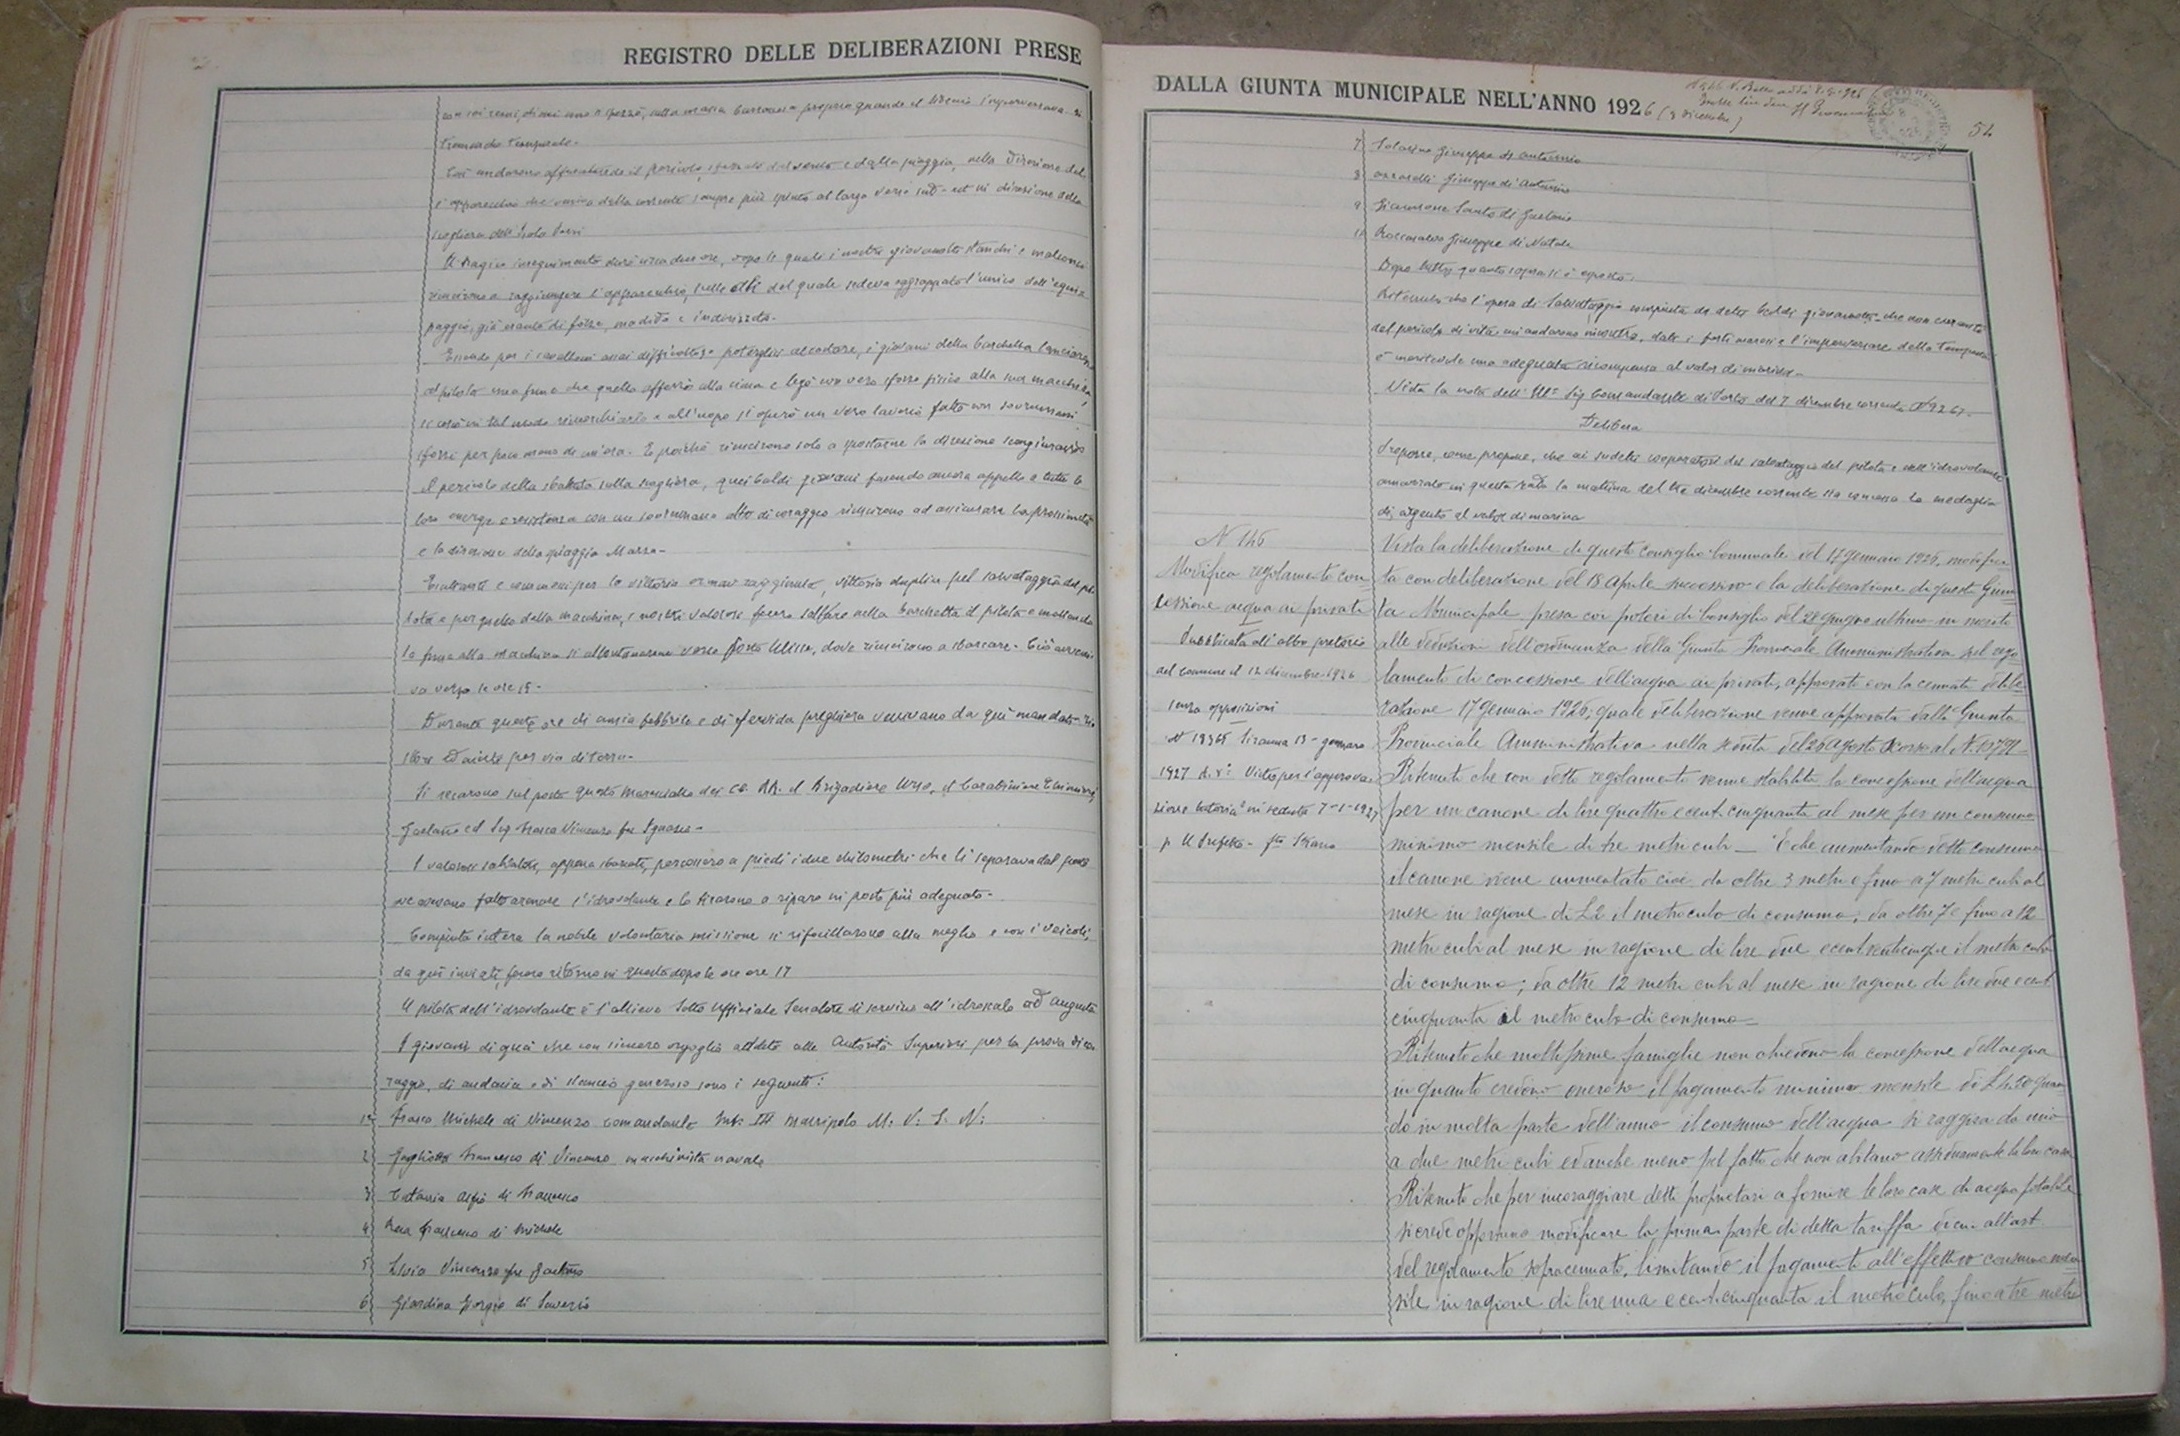 REGISTRO DELLE DELIBERAZIONI PRESE
tremenda tempesta.
Così andarono affrontando il pericolo, sferzati dal vento e dalla pioggia, nella direzione del
l'apparecchio che veniva dalla corrente sempre più spinto al largo verso sud-est in direzione della
scogliera dell'Isola
Il tragico inseguimento durò circa due ore, dopo le quali i nostri giovanotti stanchi e malconci
riuscirono a raggiungere l'apparecchio, sulle ali del quale sedeva aggrappato l'unico dell'equi
paggio, già esausto di forze, madido e indolenzito.
Essendo per i cavalloni assai difficoltoso potergli accostare, i giovani della barchetta lanciarono
al pilota una fune che quello afferrò alla cima e legò con vero sforzo fisico alla sua macchina,
si cercò in tal modo rimorchiarlo e all'uopo si operò un vero lavorio fatto con sovrumani
sforzi per poco meno di un'ora. E poichè riuscirono solo a spostarne la direzione scongiurando
il pericolo della sbattuta sulla scogliera, quei baldi giovani facendo ancora appello a tutte le
loro energie e resistenza con un sovrumano atto di coraggio riuscirono ad assicurare la prossimità
e la direzione della spiaggia Marza.
Esultanti e commossi per la vittoria ormai raggiunta, vittoria duplice pel salvataggio del pi
lota e per quello della macchina, i nostri valorosi fecero saltare nella barchetta il pilota e mollando
la fune alla macchina si allontanarono verso Porto Ulisse, dove riuscirono a sbarcare. Ciò avveni
va verso le ore 15.
Durante queste ore di ansia febbrile e di fervida preghiera venivano da qui mandati
per via di terra.
Si recarono sul posto questo Maresciallo dei CC. RR. il Brigadiere il Carabiniere
Gaetano ed Sig. Frasca Vincenzo fu Ignazio.
I valorosi salvatori, appena sbarcati, percorsero a piedi i due chilometri che li separava dal punto
ove avevano fatto arenare l'idrovolante e lo tirarono a riparo in posto più adeguato.
Compiuta intera la nobile volontaria missione si rifocillarono alla meglio e con i veicoli,
da qui inviati, fecero ritorno in questo dopo le ore 17
Il pilota dell'idrovolante è l'allievo Sotto Ufficiale Senatore di servizio all'idroscalo ad Augusta
I giovani di qui che con sincero orgoglio addito alle Autorità Superiori per la prova di co
raggio, di audacia e di slancio generoso sono i seguenti:
1° Frasca Michele di Vincenzo comandante III Manipolo M. V. S. N.
2 Francesco di Vincenzo macchinista navale
3 Catania Alfio di Francesco
4 Francesco di Michele
5 Vincenzo fu Gaetano
6 Giardina Giorgio di Saverio
DALLA GIUNTA MUNICIPALE NELL'ANNO 1926 (9 dicembre)
7 Giuseppe di Antonio
8 Giuseppe di Antonio
9 Santo di Gaetano
10 Giuseppe di Natale
Dopo tutto quanto sopra si è esposto:
Ritenuto che l'opera di salvataggio compiuta da detti baldi giovanotti che non curanti
del pericolo di vita cui andarono incontro, dati i forti marosi e l'imperversare della tempesta
è meritevole una adeguata ricompensa al valor di marina.
Vista la nota dell'Ill° Sig Comandante di Porto del 7 dicembre corrente N
Delibera
Proporre, come propone, che ai sudetti cooperatori del salvataggio del pilota e dell'idrovolante
ammarato in questa rada la mattina del tre dicembre corrente sia concessa la medaglia
di argento al valor di marina
N 146
Modifica regolamento con
cessione acqua ai privati
Pubblicata all'albo pretorio
del Comune il 12 dicembre 1926
senza opposizioni
N 19365 Siracusa 13 gennaro
1927 A. V° Visto per l'approva
zione tutoria in seduta 7-1-1927
p Il Prefetto - f.to
Vista la deliberazione di questo Consiglio Comunale del 17 gennaio 1926, modifica
ta con deliberazione del 18 Aprile successivo e la deliberazione di questa Giun
ta Municipale presa coi poteri di Consiglio del 28 giugno ultimo in merito
alle deduzioni dell'ordinanza della Giunta Provinciale Amministrativa pel rego
lamento di concessione dell'acqua ai privati, approvato con la cennata delibe
razione 17 gennaio 1926; quale deliberazione venne approvata dalla Giunta
Provinciale Amministrativa nella seduta del 26 Agosto scorso al N.
Ritenuto che con detto regolamento venne stabilito la concessione dell'acqua
per un canone di lire quattro e cent. cinquanta al mese per un consumo
minimo mensile di tre metri cubi - E che aumentando detto consumo
il canone viene aumentato cioè da oltre 3 metri e fino a 7 metri cubi al
mese in ragione di L 2 il metro cubo di consumo; da oltre 7 e fino a 12
metri cubi al mese in ragione di lire due e cent. venticinque il metro cubo
di consumo; da oltre 12 metri cubi al mese in ragione di lire due e cent
cinquanta il metro cubo di consumo
Ritenuto che moltissime famiglie non chiedono la concessione dell'acqua
in quanto credono oneroso il pagamento minimo mensile di L 4.50 quan
do in molta parte dell'anno il consumo dell'acqua si raggira da uno
a due metri cubi ed anche meno pel fatto che non abitano assiduamente le loro case
Ritenuto che per incoraggiare detti proprietari a fornire le loro case di acqua potabile
si crede opportuno modificare la prima parte di detta tariffa di cui all'art
del regolamento sopracennato, limitando il pagamento all'effettivo consumo men
sile in ragione di lire una e cent. cinquanta il metro cubo, fino a tre metri